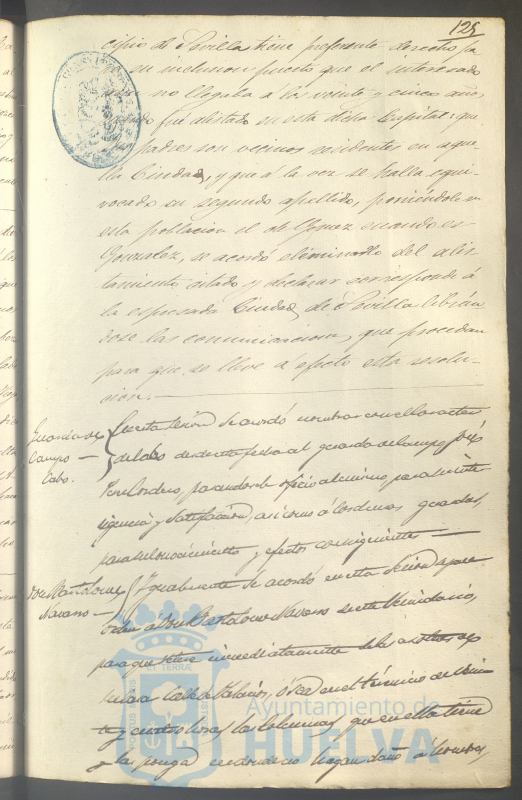 125
cipio de Sevilla tiene preferente derecho pa
su inclusion puesto que el interesado
no llegaba a los veinte y cinco años
fué alistado en esta dicha Capital; que
padres son vecinos residentes en aque-
lla Ciudad, y que á la vez se halla equi-
vocado su segundo apellido, poniéndole en
esta poblacion el de Gomez cuando es
Gonzalez, se acordó eliminarlo del alis-
tamiento citado y declarar corresponde á
la expresada Ciudad de Sevilla librán
dose las comunicaciones que procedan
para que se lleve á efecto esta resolu-
cion.
Guarda de
Campo
Cabo.
En esta sesion se acordó nombrar con el caracter
de Cabo desde esta fecha al guarda de campo José
Cordero, pasandole oficio al mismo para su inte-
ligencia y satisfaccion, asi como á los demas guardas,
para su conocimiento y efectos consiguientes
Don Bartolome
Navarro
Igualmente se acordó en esta Sesion
á Don Bartolome Navarro de este Vecindario,
para que retire inmediatamente de la
Calle de Palacios, ó sea en el término de vein
te y cuatro horas las colmenas que en ella tiene
y las ponga en donde no hagan daño á
PORTUS MARIS ET TERRÆ CUSTODIA
Ayuntamiento de
HUELVA